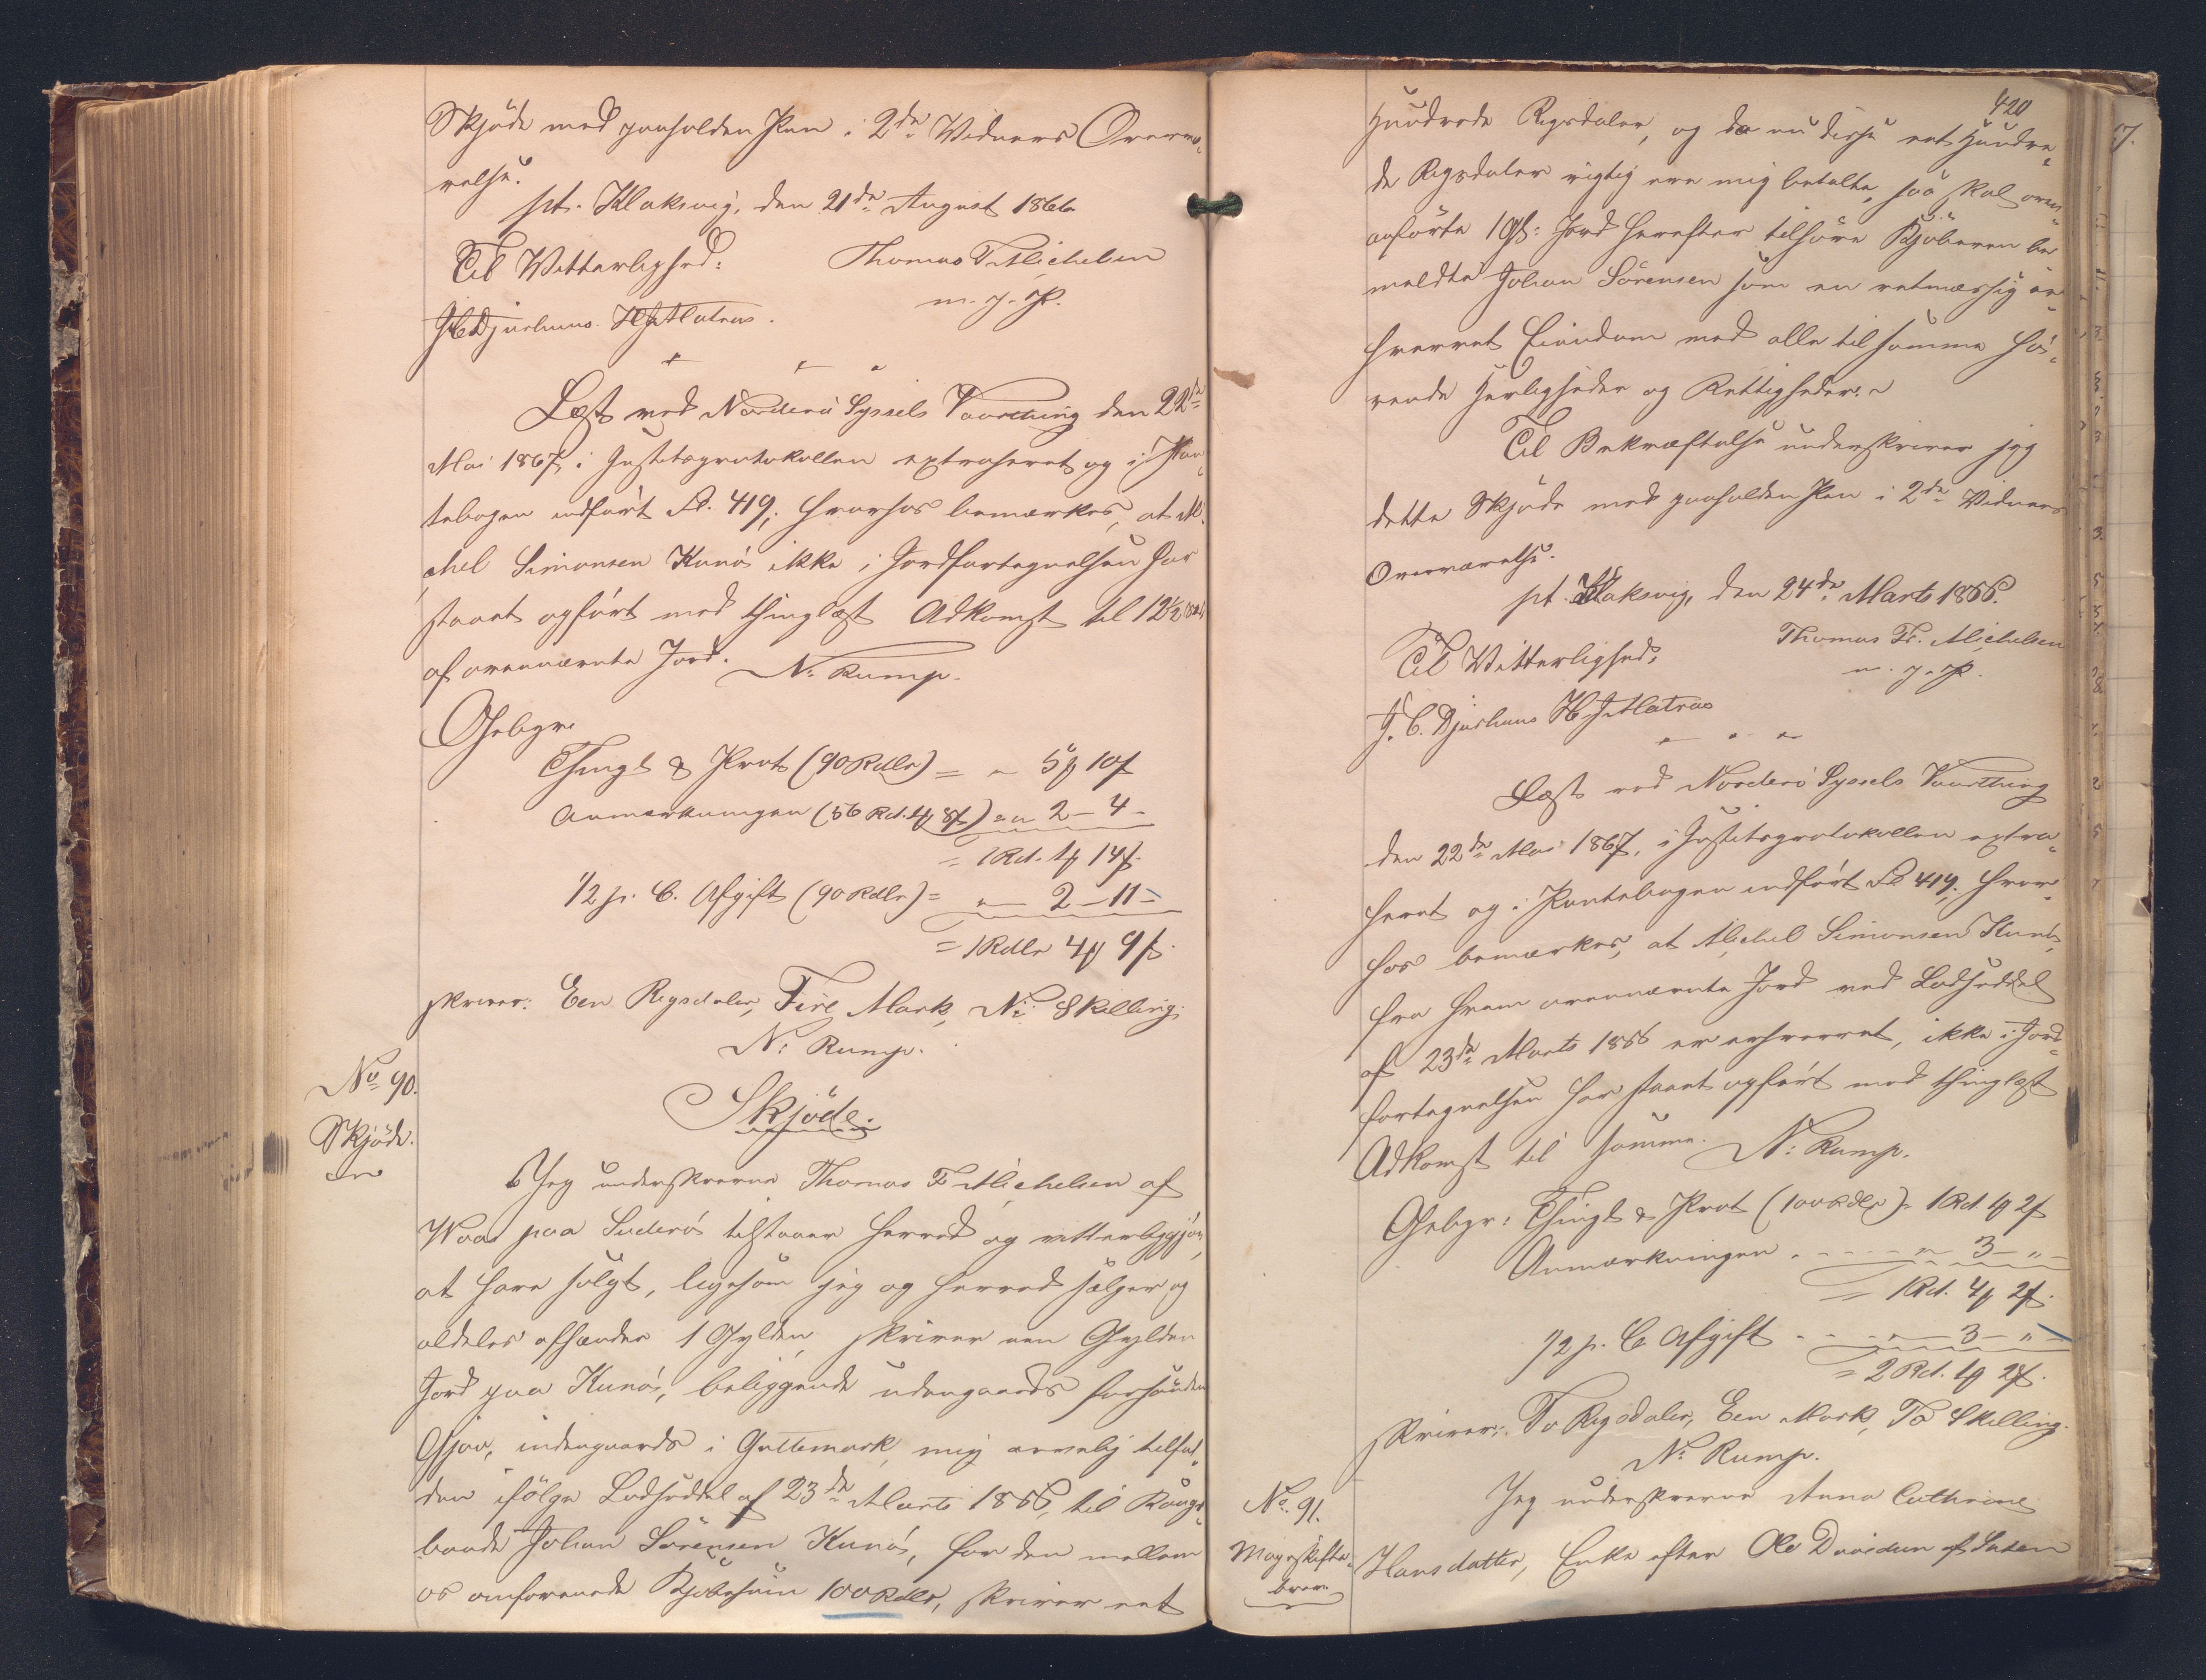 Skjøde med paaholden Pen i 2de Vidners Overvæ-
relse.
pt. Klaksvig, den 21de August 1866
Til Vitterlighed: Thomas F Michelsen
J C Djurhuus. H J Matras. m. p. P.
Læst ved Norderø Syssels Vaarthing den 22de
Mai 1867, i Justitsprotokollen extraheret og i Pan-
tebogen indført Fol. 419; hvorhos bemærkes, at Mi-
chel Simonsen Kunø ikke i Jordfortegnelsen har
staaet opført med thinglæst Adkomst til 12½
af ovennævnte Jord. N: Rump.
Gebyr:
Thingl & Prot (90 Rdlr) = „ 5 ₥ 10 ß
Anmærkningen (56 Rd. 4 ₥ 8 ß) = „ 2 – 4 –
= 1 Rd. 1 ₥ 14 ß.
1/2 p. C. Afgift (90 Rdlr) = „ 2 – 11 –
= 1 Rdlr 4 ₥ 9 ß.
skriver: Een Rigsdaler, Fire Mark, Ni Skilling.
N: Rump.
No 90.
Skjøde.
Skjøde.
Jeg underskrevne Thomas F Michelsen af
Waai paa Suderø tilstaaer herved og vitterliggjør,
at have solgt, ligesom jeg og herved sælger og
aldeles afhænder 1 Gylden, skriver een Gylden
Jord paa Kunø, beliggende udengaards forhaanden
Gjov, indengaards i Gullemark, mig arvelig tilfal-
den ifølge Lodseddel af 23de Marts 1866, til Kongs-
bonde Johan Sørensen Kunø, for den mellem
os omforenede Kjøbesum 100 Rdlr, skriver eet
420
Hundrede Rigsdaler, og da nu disse eet Hundre-
de Rigsdaler rigtig ere mig betalte, saa skal oven-
anførte 1 Gl: Jord herefter tilhøre Kjøberen be-
meldte Johan Sørensen som en retmæssig er-
hvervet Eiendom med alle til samme hø-
rende Herligheder og Rettigheder. –
Til Bekræftelse underskriver jeg
dette Skjøde med paaholden Pen i 2de Vidners
Overværelse.
pt. Klaksvig, den 24de Marts 1866.
Til Vitterlighed: Thomas Fr. Michelsen
J. C. Djurhuus H J Matras m. p. P.
Læst ved Norderø Syssels Vaarthing
den 22de Mai 1867, i Justitsprotokollen extra-
heret og i Pantebogen indført Fol 419, hvor-
hos bemærkes, at Michel Simonsen Kunø,
fra hvem ovennævnte Jord ved Lodseddel
af 23de Marts 1866 er erhvervet, ikke i Jord-
fortegnelsen har staaet opført med thinglæst
Adkomst til samme. N: Rump.
Gebyr: Thingl & Prot (100 Rdlr) = 1 Rd. 1 ₥ 2 ß
Anmærkningen . - - - - „ 3 – „ –
= 1 Rd. 4 ₥ 2 ß.
1/2 p. C Afgift - - - „ 3 – „ –
= 2 Rd. 1 ₥ 2 ß.
skriver: To Rigsdaler, Een Mark, To Skilling.
N: Rump.
No. 91.
Mageskifte-
brev.
Jeg underskrevne Anna Cathrine
Hansdatter, Enke efter Ole Davidsen af